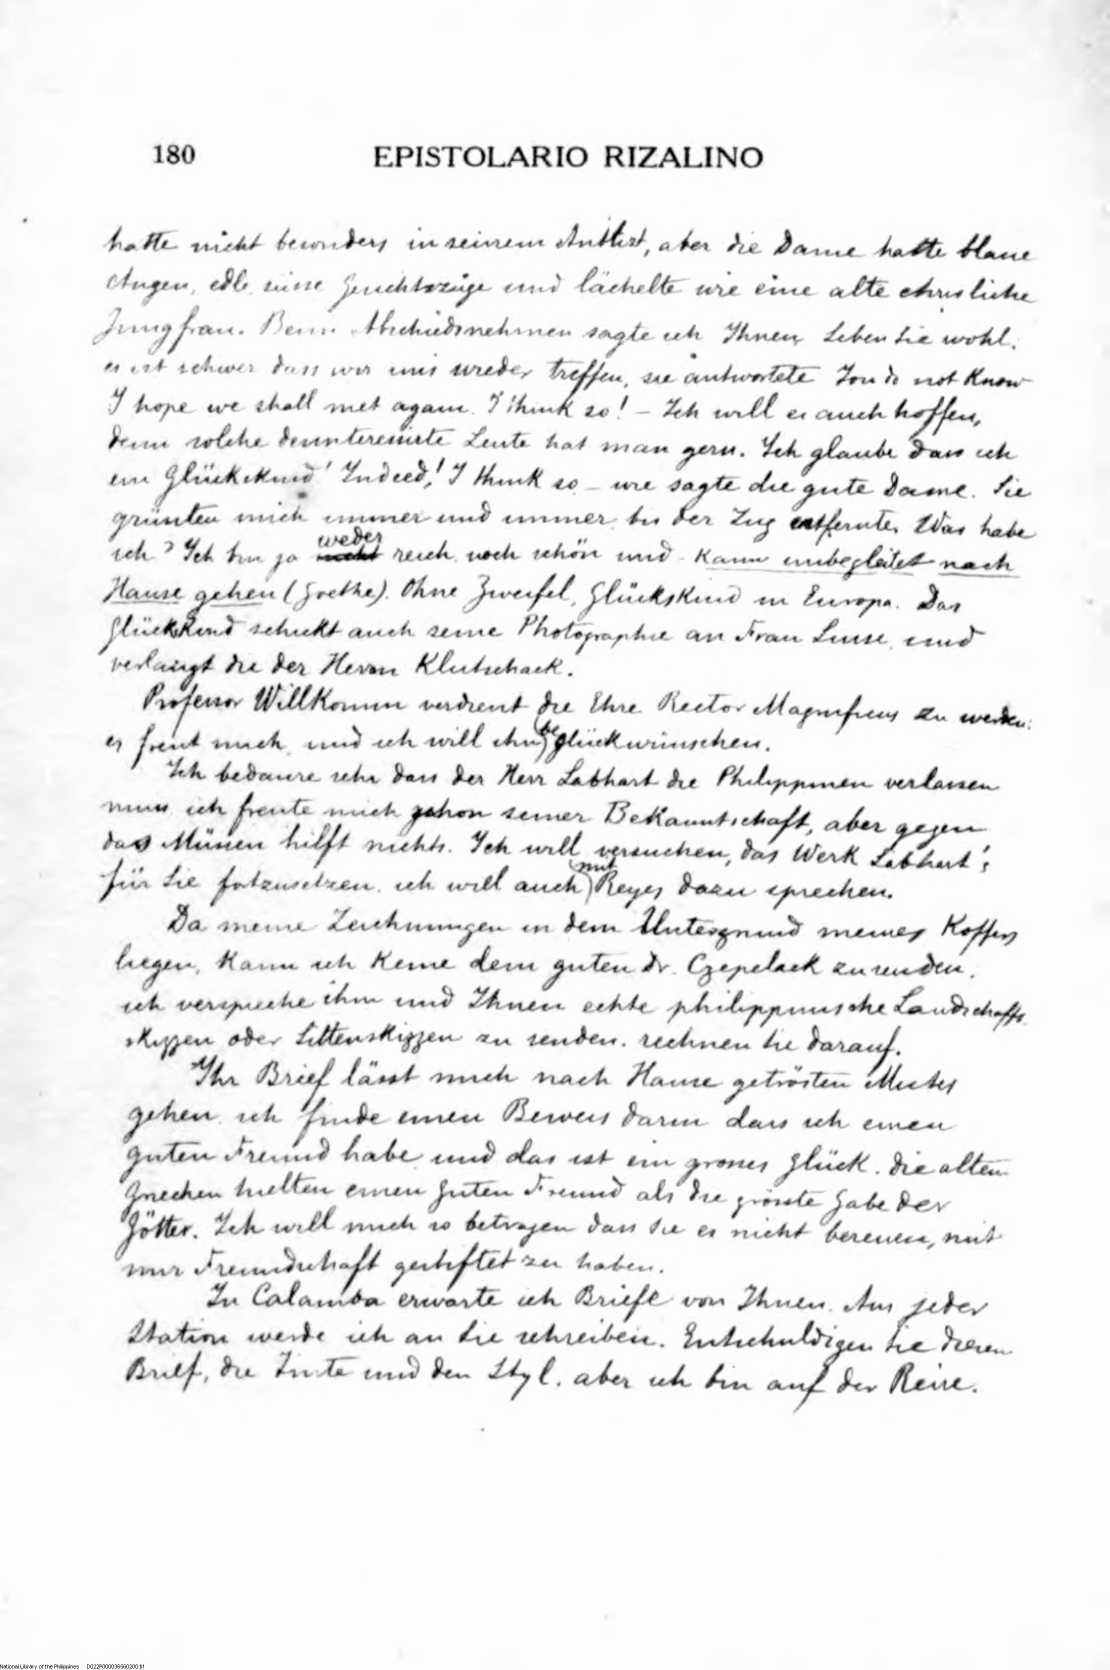 180 EPISTOLARIO RIZALINO
hatte nicht besonders in seinem Antlizt, aber die Dame hatte blaue
Augen, edle, süsse Gesichtszüge und lächelte wie eine alte christliche
Jungfrau. Beim Abschiednehmen sagte ich Ihnen, Leben Sie wohl,
es ist schwer dass wir uns wieder treffen, sie antwortete You do not Know
I hope we shall met again. I think so! – Ich will es auch hoffen,
denn solche desinteressirte Leute hat man gern. Ich glaube dass ich
ein Glückskind! Indeed! I think so – wie sagte die gute Dame. Sie
grüssten mich immer und immer, bis der Zug entfernte. Was habe
ich? Ich bin ja weder reich, noch schön und - Kann unbegleitet nach
Hause gehen (Goethe). Ohne Zweifel, Glückskind in Europa. Das
Glückskind schickt auch seine Photographie an Frau Luise, und
verlangt die der Herrn Klutschack.
Professor Willkomm verdient die Ehre Rector Magnificus zu werden:
es freut mich, und ich will ihn beglückwünschen.
Ich bedaure sehr dass der Herr Labhart die Philippinen verlassen
muss, ich freute mich schon seiner Bekanntschaft, aber gegen
das Müssen hilft nichts. Ich will versuchen, das Werk Labhart's
für Sie fortzusetzen, ich will auch mit Reyes dazu sprechen.
Da meine Zeichnungen in dem Untergrund meines Koffers
liegen, Kann ich Keine dem guten Dr. Czepelack zusenden,
ich verspreche ihm und Ihnen echte philippinische Landschafts
skizzen oder Sittenskizzen zu senden. rechnen Sie darauf.
Ihr Brief lässt mich nach Hause getrösten Mutes
gehen, ich finde einen Beweis darin dass ich einen
guten Freund habe und das ist ein grosses Glück. die alten
Griechen hielten einen guten Freund als die grösste Gabe der
Götter. Ich will mich so betragen dass Sie es nicht bereuen, mit
mir Freundschaft gestiftet zu haben.
In Calamba erwarte ich Briefe von Ihnen. Aus jeder
Station werde ich an Sie schreiben. Entschuldigen Sie diesen
Brief, die Tinte und den Styl, aber ich bin auf der Reise.
National Library of the Philippines